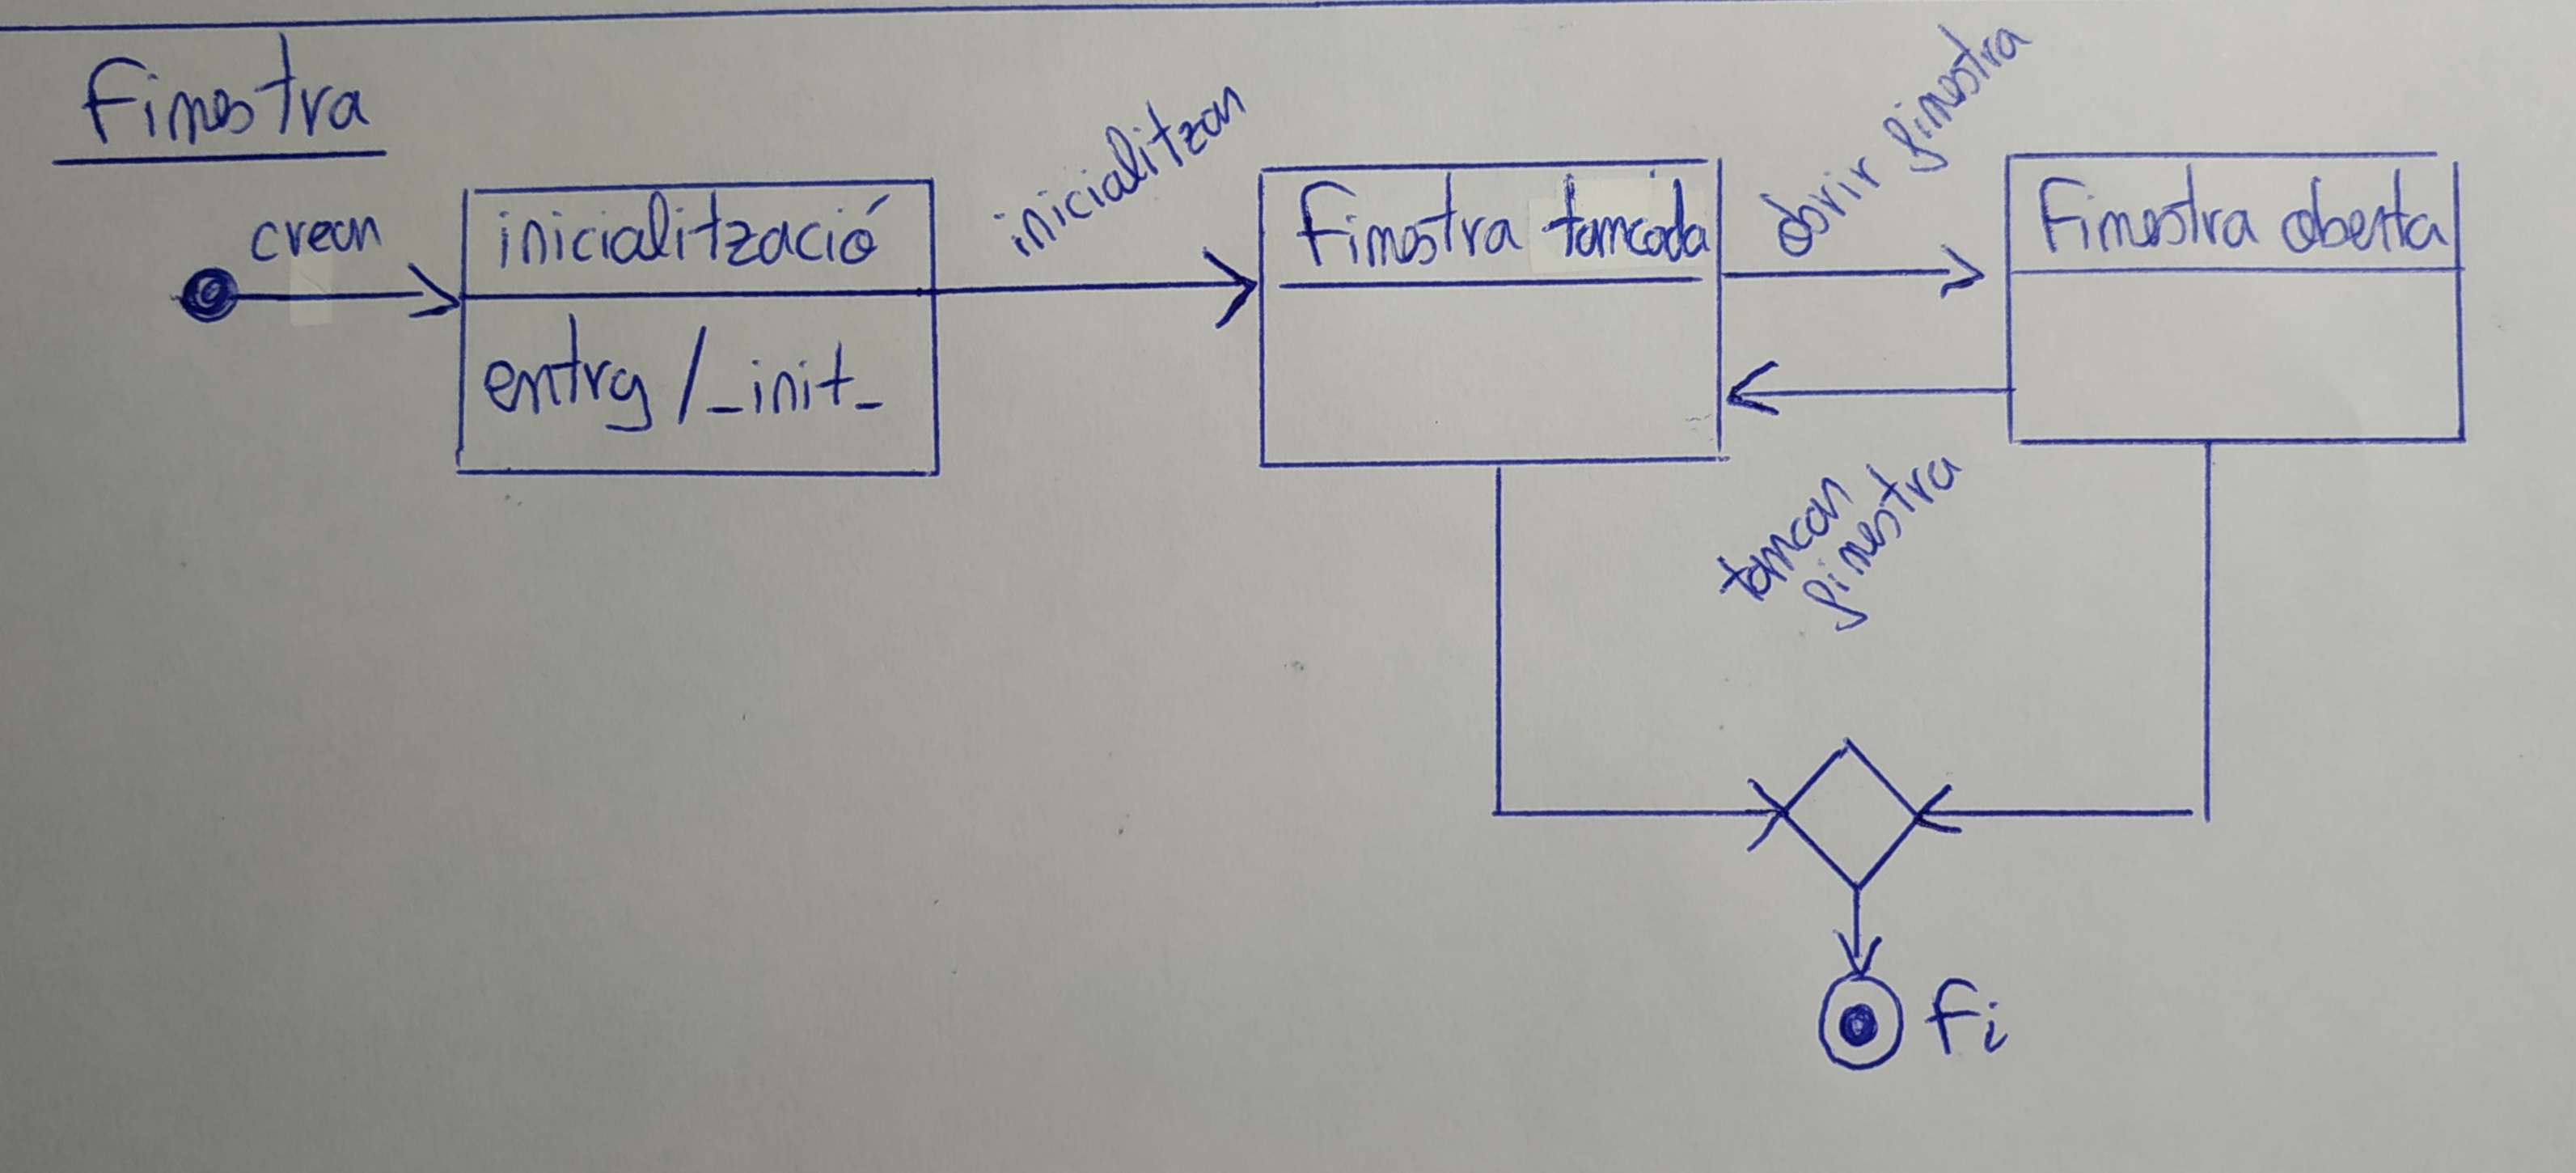 Finestra
crear
inicialització
entry / _init_
inicialitzar
Finestra tancada
obrir finestra
Finestra oberta
tancar
finestra
fi